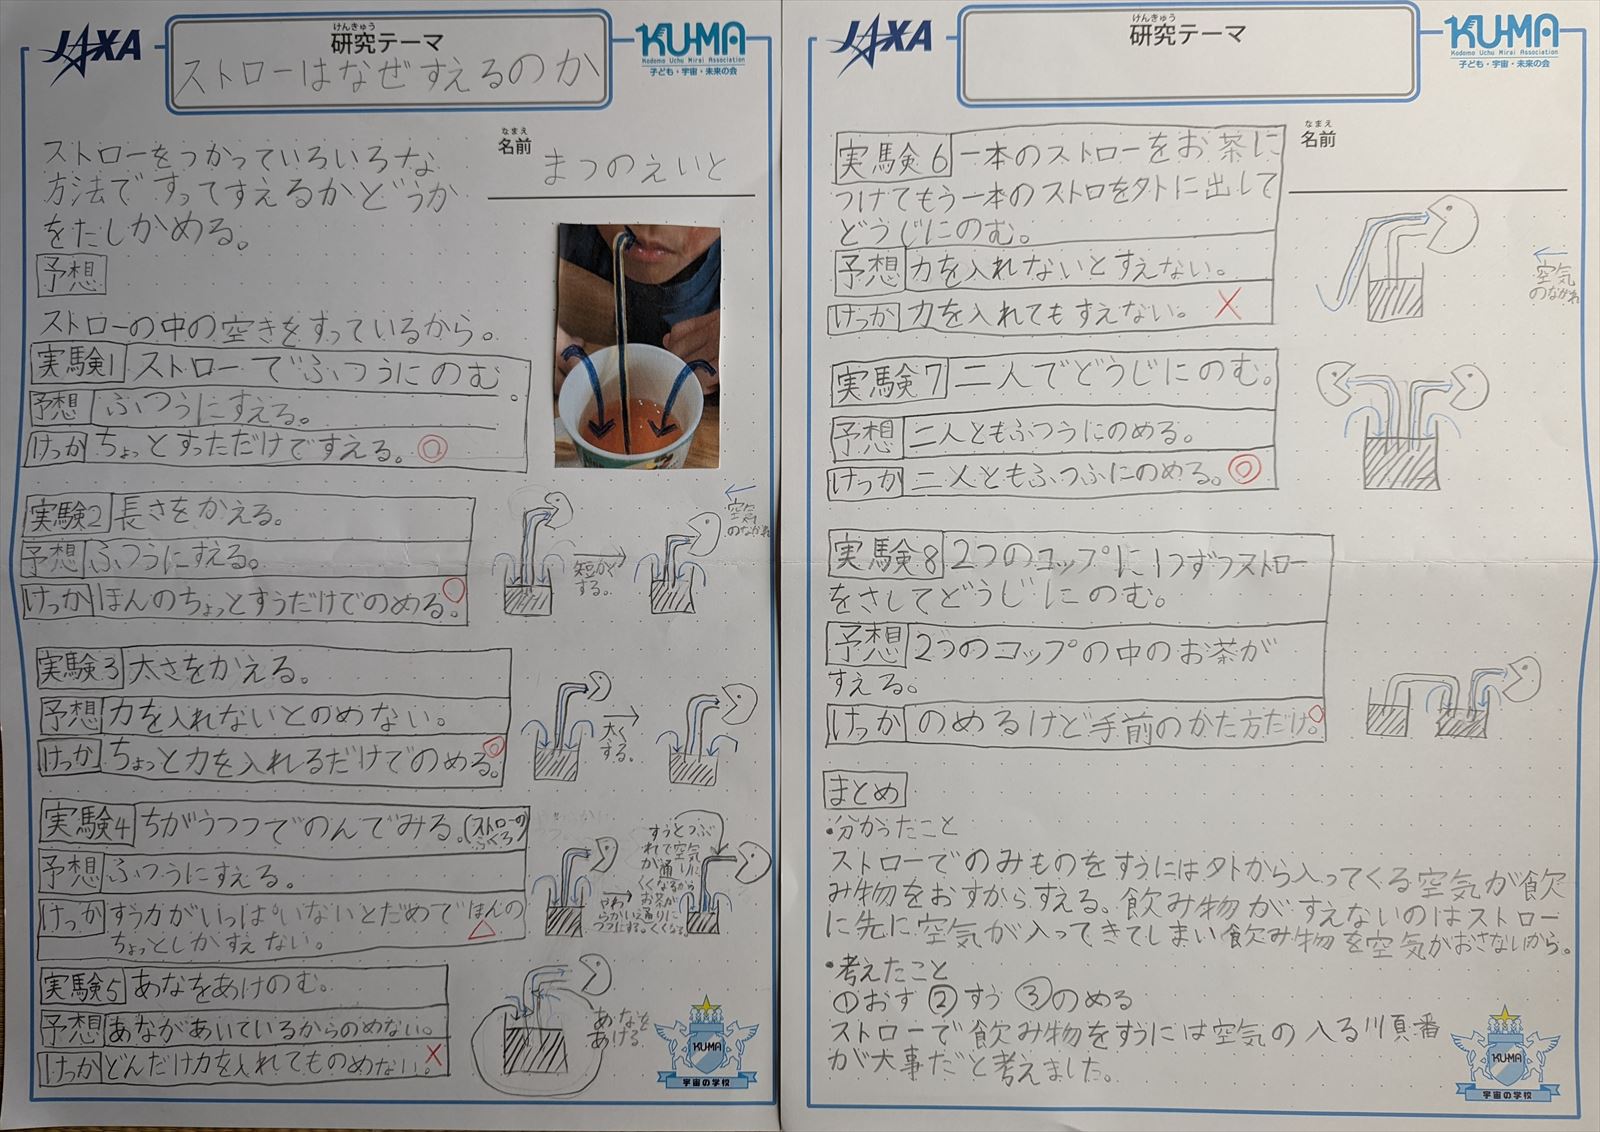 JAXA
けんきゅう
研究テーマ
ストローはなぜすえるのか
KU-MA
Kodomo Uchu Mirai Association
子ども・宇宙・未来の会
なまえ
名前
まつのえいと
ストローをつかっていろいろな
方法ですってすえるかどうか
をたしかめる。
予想
ストローの中の空きをすっているから。
実験1 ストローでふつうにのむ。
予想 ふつうにすえる。
けっか ちょっとすっただけですえる。◎
実験2 長さをかえる。
予想 ふつうにすえる。
けっか ほんのちょっとすうだけでのめる。○
空気
のながれ
短かく
する。
実験3 太さをかえる。
予想 力を入れないとのめない。
けっか ちょっと力を入れるだけでのめる。◎
太く
する。
実験4 ちがうつつでのんでみる。(ストローの
ふくろ)
予想 ふつうにすえる。
けっか すう力がいっぱいないとだめでほんの
ちょっとしかすえない。△
やわ
らかい
つつにする。
すうとつぶ
れて空気
が通りに
くくなるから
お茶が
通りに
くくなる。
実験5 あなをあけのむ。
予想 あながあいているからのめない。
けっか どんだけ力を入れてものめない。×
あなを
あける
KU-MA
宇宙の学校
JAXA
けんきゅう
研究テーマ
KU-MA
Kodomo Uchu Mirai Association
子ども・宇宙・未来の会
なまえ
名前
実験6 一本のストローをお茶に
つけてもう一本のストロを外に出して
どうじにのむ。
予想 力を入れないとすえない。
けっか 力を入れてもすえない。×
空気
のながれ
実験7 二人でどうじにのむ。
予想 二人ともふつうにのめる。
けっか 二人ともふつふにのめる。◎
実験8 2つのコップに1つずつストロー
をさしてどうじにのむ。
予想 2つのコップの中のお茶が
すえる。
けっか のめるけど手前のかた方だけ。○
まとめ
・分かうたこと
ストローでのみものをすうには外から入ってくる空気が飲
み物をおすからすえる。飲み物がすえないのはストロー
に先に空気が入ってきてしまい飲み物を空気がおさないから。
・考えたこと
①おす ②すう ③のめる
ストローで飲み物をすうには空気の入る順番
が大事だと考えました。
KU-MA
宇宙の学校